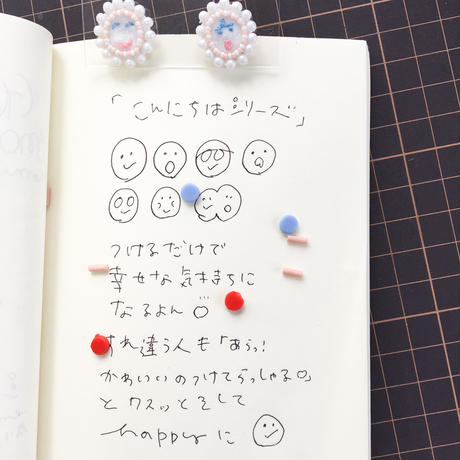 「こんにちはシリーズ」
つけるだけで
幸せな気持ちに
なるよん
すれ違う人も「あらっ!
かわいいのつけてらっしゃる」
とクスッとして
happyに